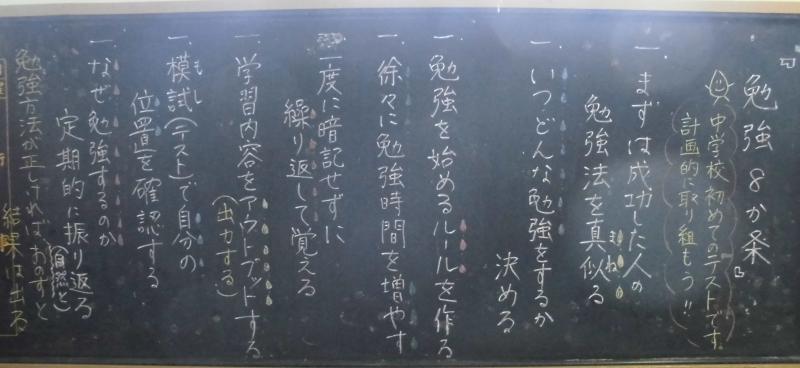 『勉強8か条』
中学校初めてのテストです。
計画的に取り組もう!!
一.まずは成功した人の
勉強法を真似る
まね
一.いつどんな勉強をするか
決める
一.勉強を始めるルールを作る
一.徐々に勉強時間を増やす
一.一度に暗記せずに
繰り返して覚える
一.学習内容をアウトプットする
(出力する)
一.模試(テスト)で自分の
もし
位置を確認する
一.なぜ勉強するのか
定期的に振り返る
勉強方法が正しければ、おのずと
(自然と)
結果は出る